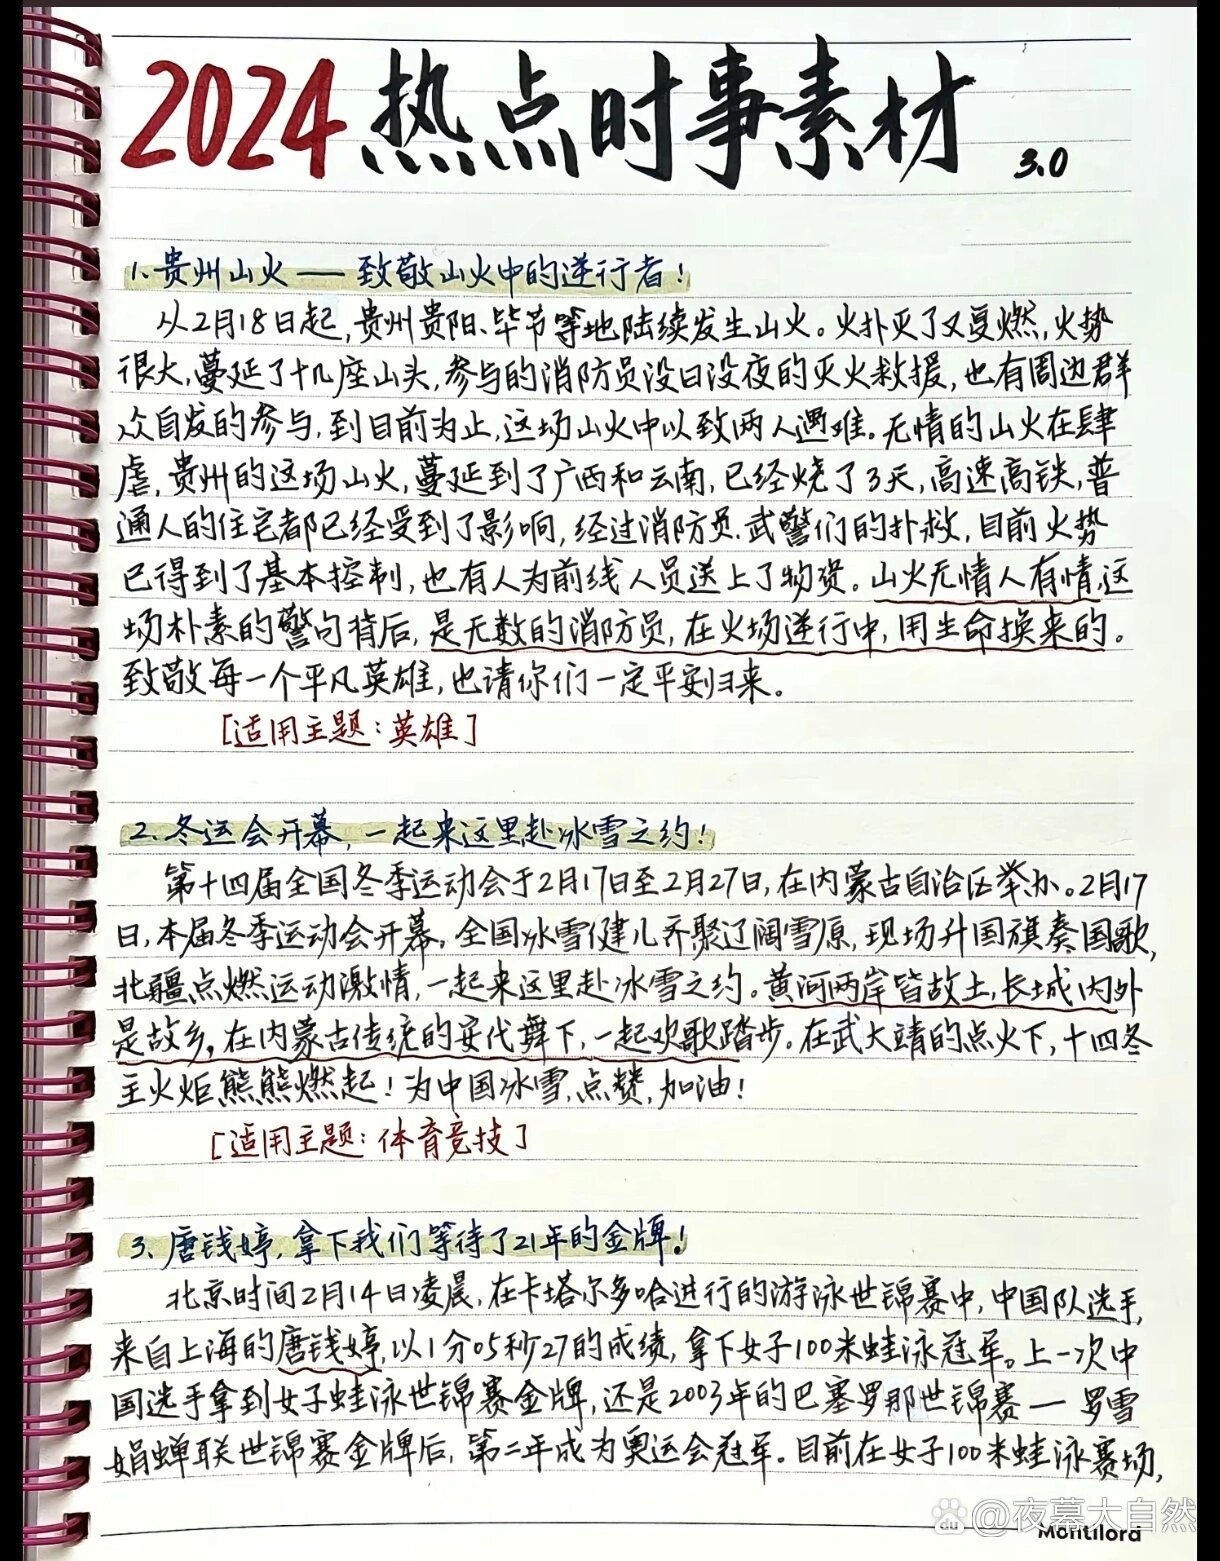 2024热点时事素材 3.0
1.贵州山火——致敬山火中的逆行者!
从2月18日起,贵州贵阳、毕节等地陆续发生山火。火扑灭了又复燃,火势
很大,蔓延了十几座山头,参与的消防员没日没夜的灭火救援,也有周边群
众自发的参与,到目前为止,这场山火中以致两人遇难。无情的山火在肆
虐,贵州的这场山火,蔓延到了广西和云南,已经烧了3天,高速高铁,普
通人的住宅都已经受到了影响,经过消防员、武警们的扑救,目前火势
已得到了基本控制,也有人为前线人员送上了物资。山火无情人有情,这
场朴素的警句背后,是无数的消防员,在火场逆行中,用生命换来的。
致敬每一个平凡英雄,也请你们一定平安归来。
[适用主题:英雄]
2.冬运会开幕,一起来这里赴冰雪之约!
第十四届全国冬季运动会于2月17日至2月27日,在内蒙古自治区举办。2月17
日,本届冬季运动会开幕。全国冰雪健儿齐聚辽阔雪原,现场升国旗奏国歌,
北疆点燃运动激情,一起来这里赴冰雪之约。黄河两岸皆故土,长城内外
是故乡。在内蒙古传统的安代舞下,一起欢歌踏步。在武大靖的点火下,十四冬
主火炬熊熊燃起!为中国冰雪,点赞,加油!
[适用主题:体育竞技]
3、唐钱婷,拿下我们等待了21年的金牌!
北京时间2月14日凌晨,在卡塔尔多哈进行的游泳世锦赛中,中国队选手,
来自上海的唐钱婷,以1分05秒27的成绩,拿下女子100米蛙泳冠军。上一次中
国选手拿到女子蛙泳世锦赛金牌,还是2003年的巴塞罗那世锦赛一罗雪
娟蝉联世锦赛金牌后,第二年成为奥运会冠军。目前在女子100米蛙泳赛场,
@夜幕大自然
Montilord